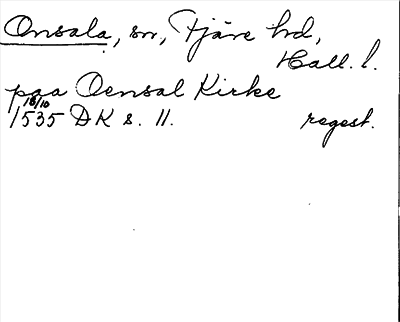 Onsala, sn, Fjäre hd,
Hall. l.
paa Oensal Kirke
18/10
1535 DK s. 11. regest.